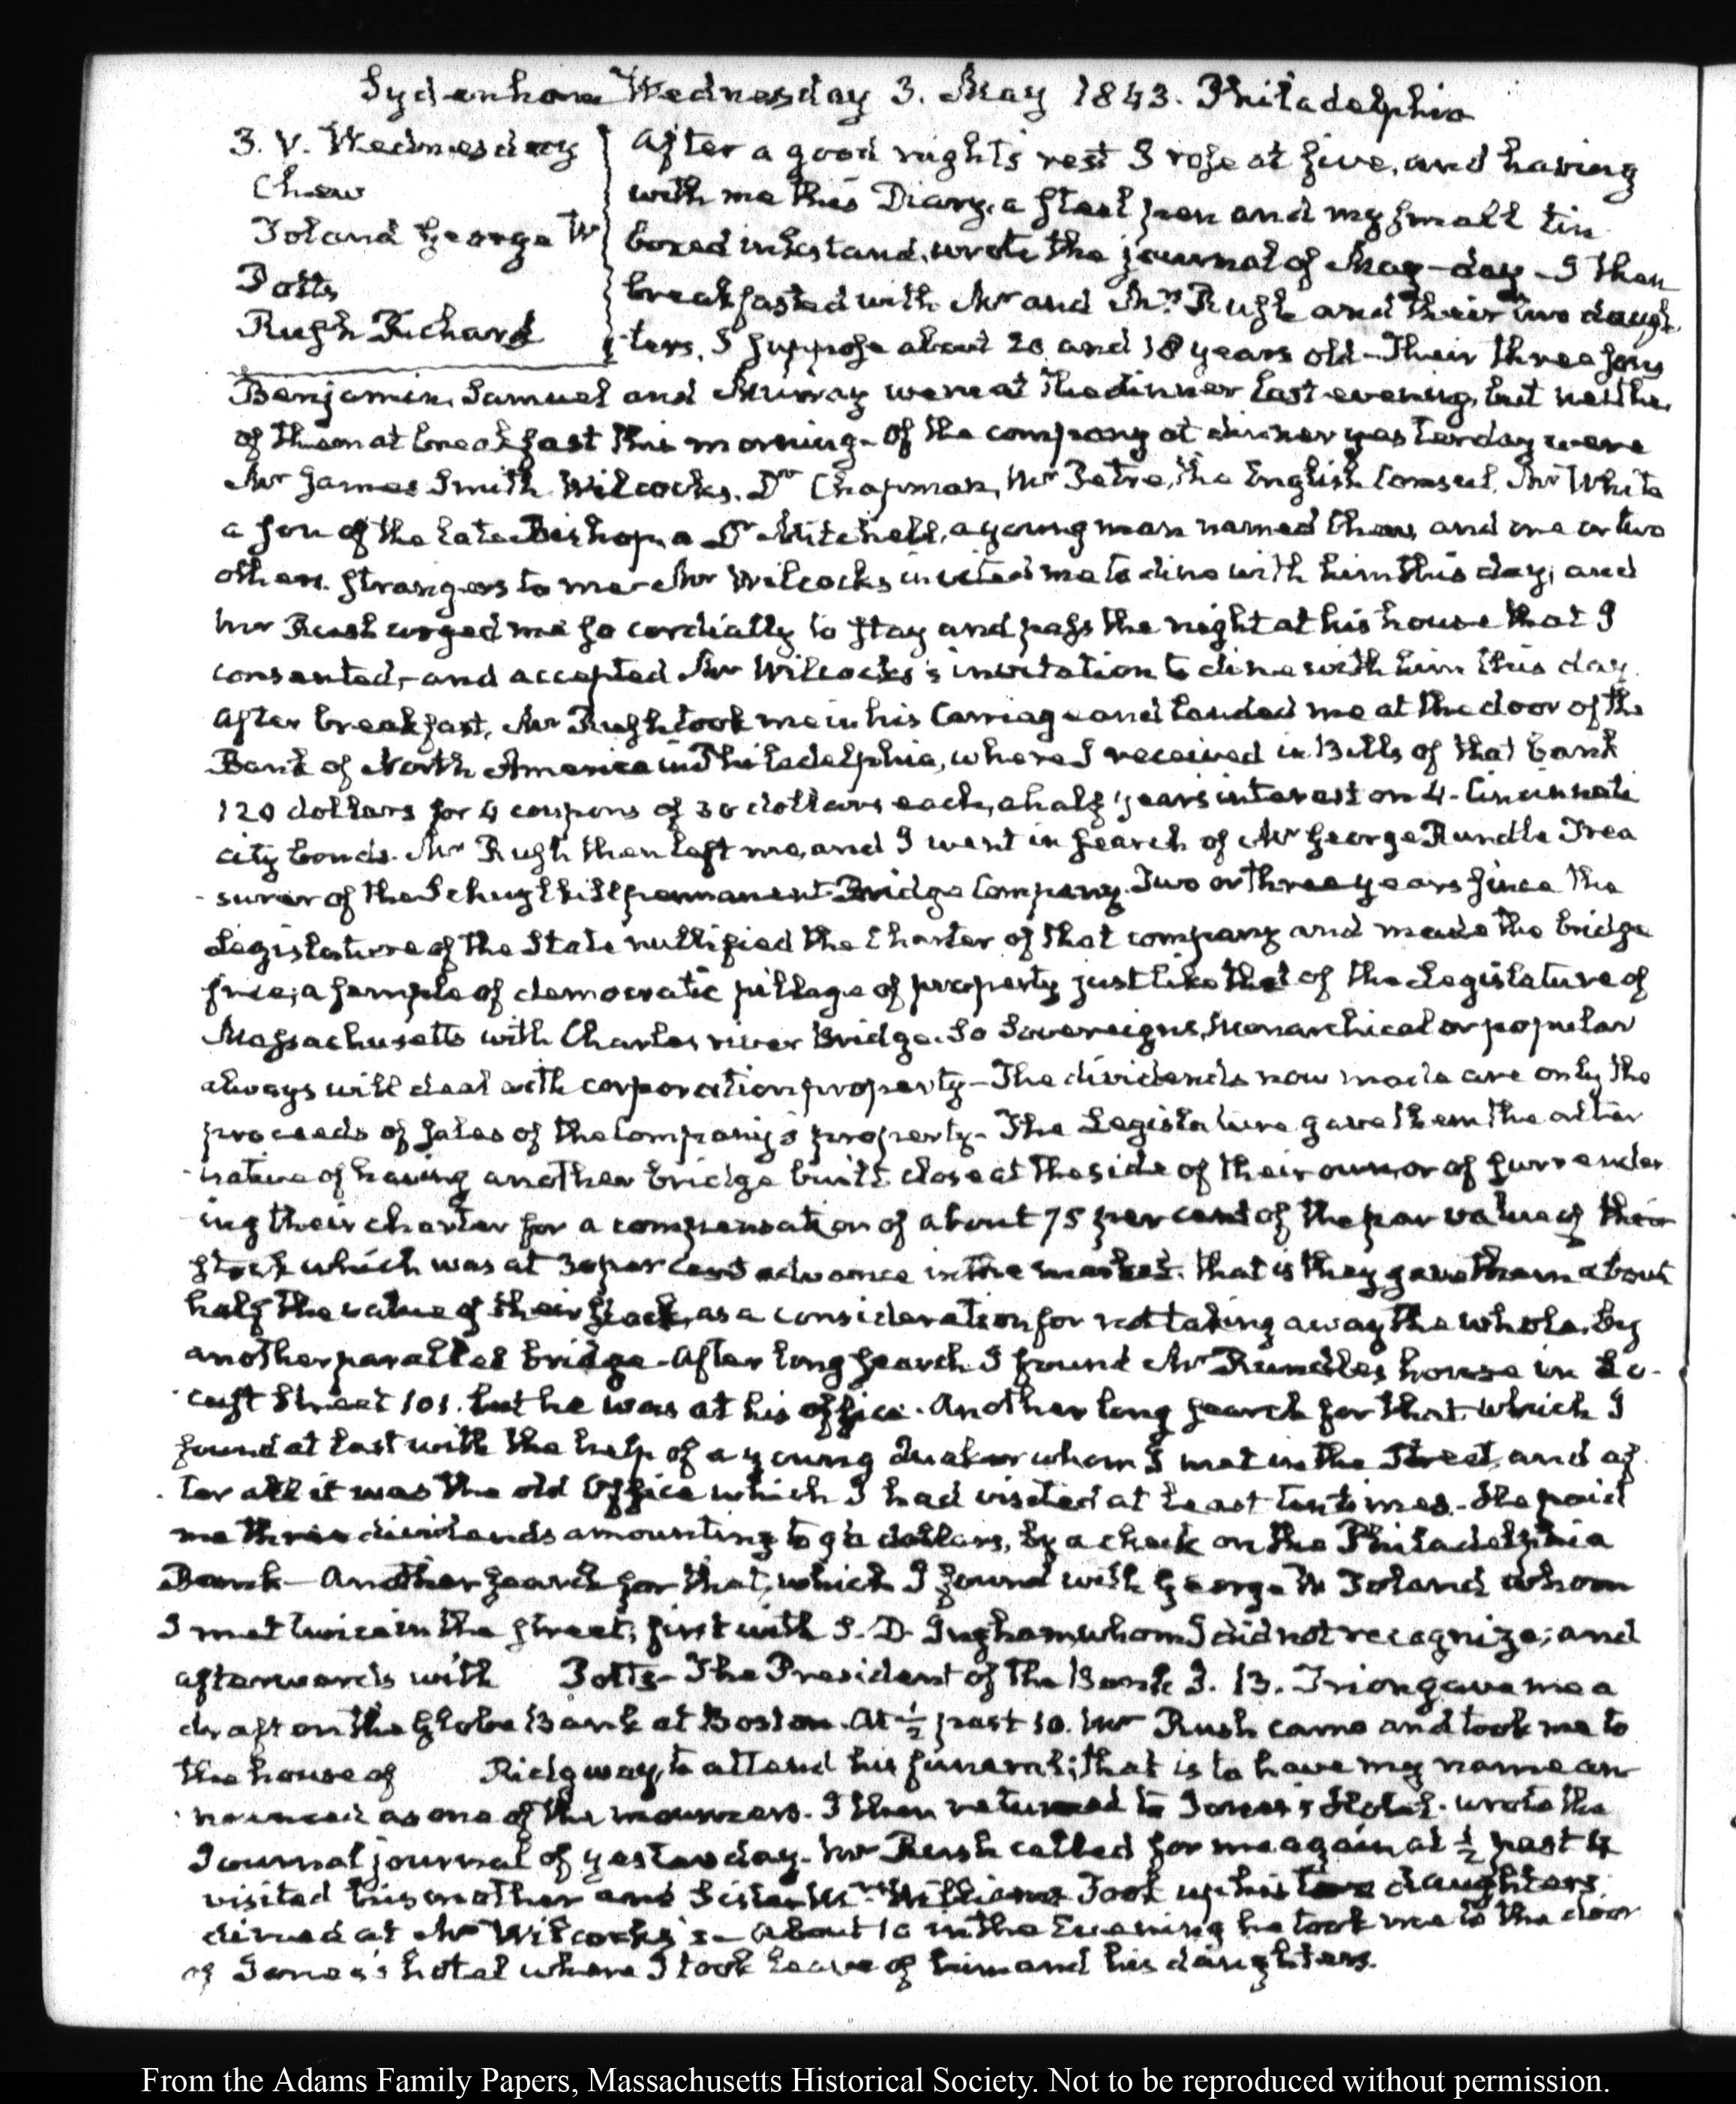 Sydenham Wednesday 3. May 1843. Philadelphia
3. V. Wednesday
Chew
Toland George W
Potts
Rush Richard
After a good night's rest I rose at five, and having
with me this Diary, a steel pen and my small tin
boxed inkstand, wrote the journal of May-day - I then
breakfasted with Mr and Mrs Rush and their two daugh-
ters, I suppose about 20 and 18 years old - Their three sons
Benjamin, Samuel and Murray were at the dinner last evening, but neither
of them at breakfast this morning - Of the company at dinner yesterday were
Mr James Smith Wilcocks, Dr Chapman, Mr Petre, the English Consul, Mr White
a son of the late Bishop, a Dr Mitchell, a young man named Chew, and one or two
others strangers to me - Mr Wilcocks invited me to dine with him this day; and
Mr Rush urged me so cordially to stay and pass the night at his house that I
consented, and accepted Mr Wilcocks's invitation to dine with him this day.
After breakfast, Mr Rush took me in his Carriage and landed me at the door of the
Bank of North America in Philadelphia, where I received in Bills of that bank
120 dollars for 4 coupons of 30 dollars each, a half year's interest on 4 Cincinnati
city bonds. Mr Rush then left me, and I went in search of Mr George Rundle Trea
-surer of the Schuylkill permanent Bridge Company. Two or three years since the
Legislature of the State nullified the Charter of that company and made the bridge
free; a sample of democratic pillage of property just like that of the Legislature of
Massachusetts with Charles river Bridge. So Sovereigns, Monarchical or popular
always will deal with corporation property - The dividends now made are only the
proceeds of sales of the Company's property - The Legislature gave them the alter
-native of having another bridge built close at the side of their own, or of surrender
-ing their charter for a compensation of about 75 per cent of the par value of their
stock which was at 30 per cent advance in the market. that is they gave them about
half the value of their stock, as a consideration for not taking away the whole, by
another parallel bridge - After long search I found Mr Rundle's house in Lo-
-cust Street 101. but he was at his office. Another long search for that, which I
found at last with the help of a young Quaker whom I met in the Street, and af
-ter all it was the old Office which I had visited at least ten times. He paid
me three dividends amounting to 90 dollars, by a check on the Philadelphia
Bank - Another search for that, which I found with George W Toland whom
I met twice in the street; first with S. D. Ingham, whom I did not recognize; and
afterwards with Potts - The President of the Bank J. B. Trion gave me a
draft on the Globe Bank at Boston. At ½ past 10. Mr Rush came and took me to
the house of Ridgway, to attend his funeral; that is to have my name an
-nounced as one of the mourners. I then returned to Jones's Hotel. wrote the
Journal journal of yesterday. Mr Rush called for me again at ½ past 4
visited his mother and Sister Mrs Williams Took up his two daughters.
dined at Mr Wilcocks's - About 10 in the Evening he took me to the door
of Jones's hotel where I took leave of him and his daughters.
From the Adams Family Papers, Massachusetts Historical Society. Not to be reproduced without permission.